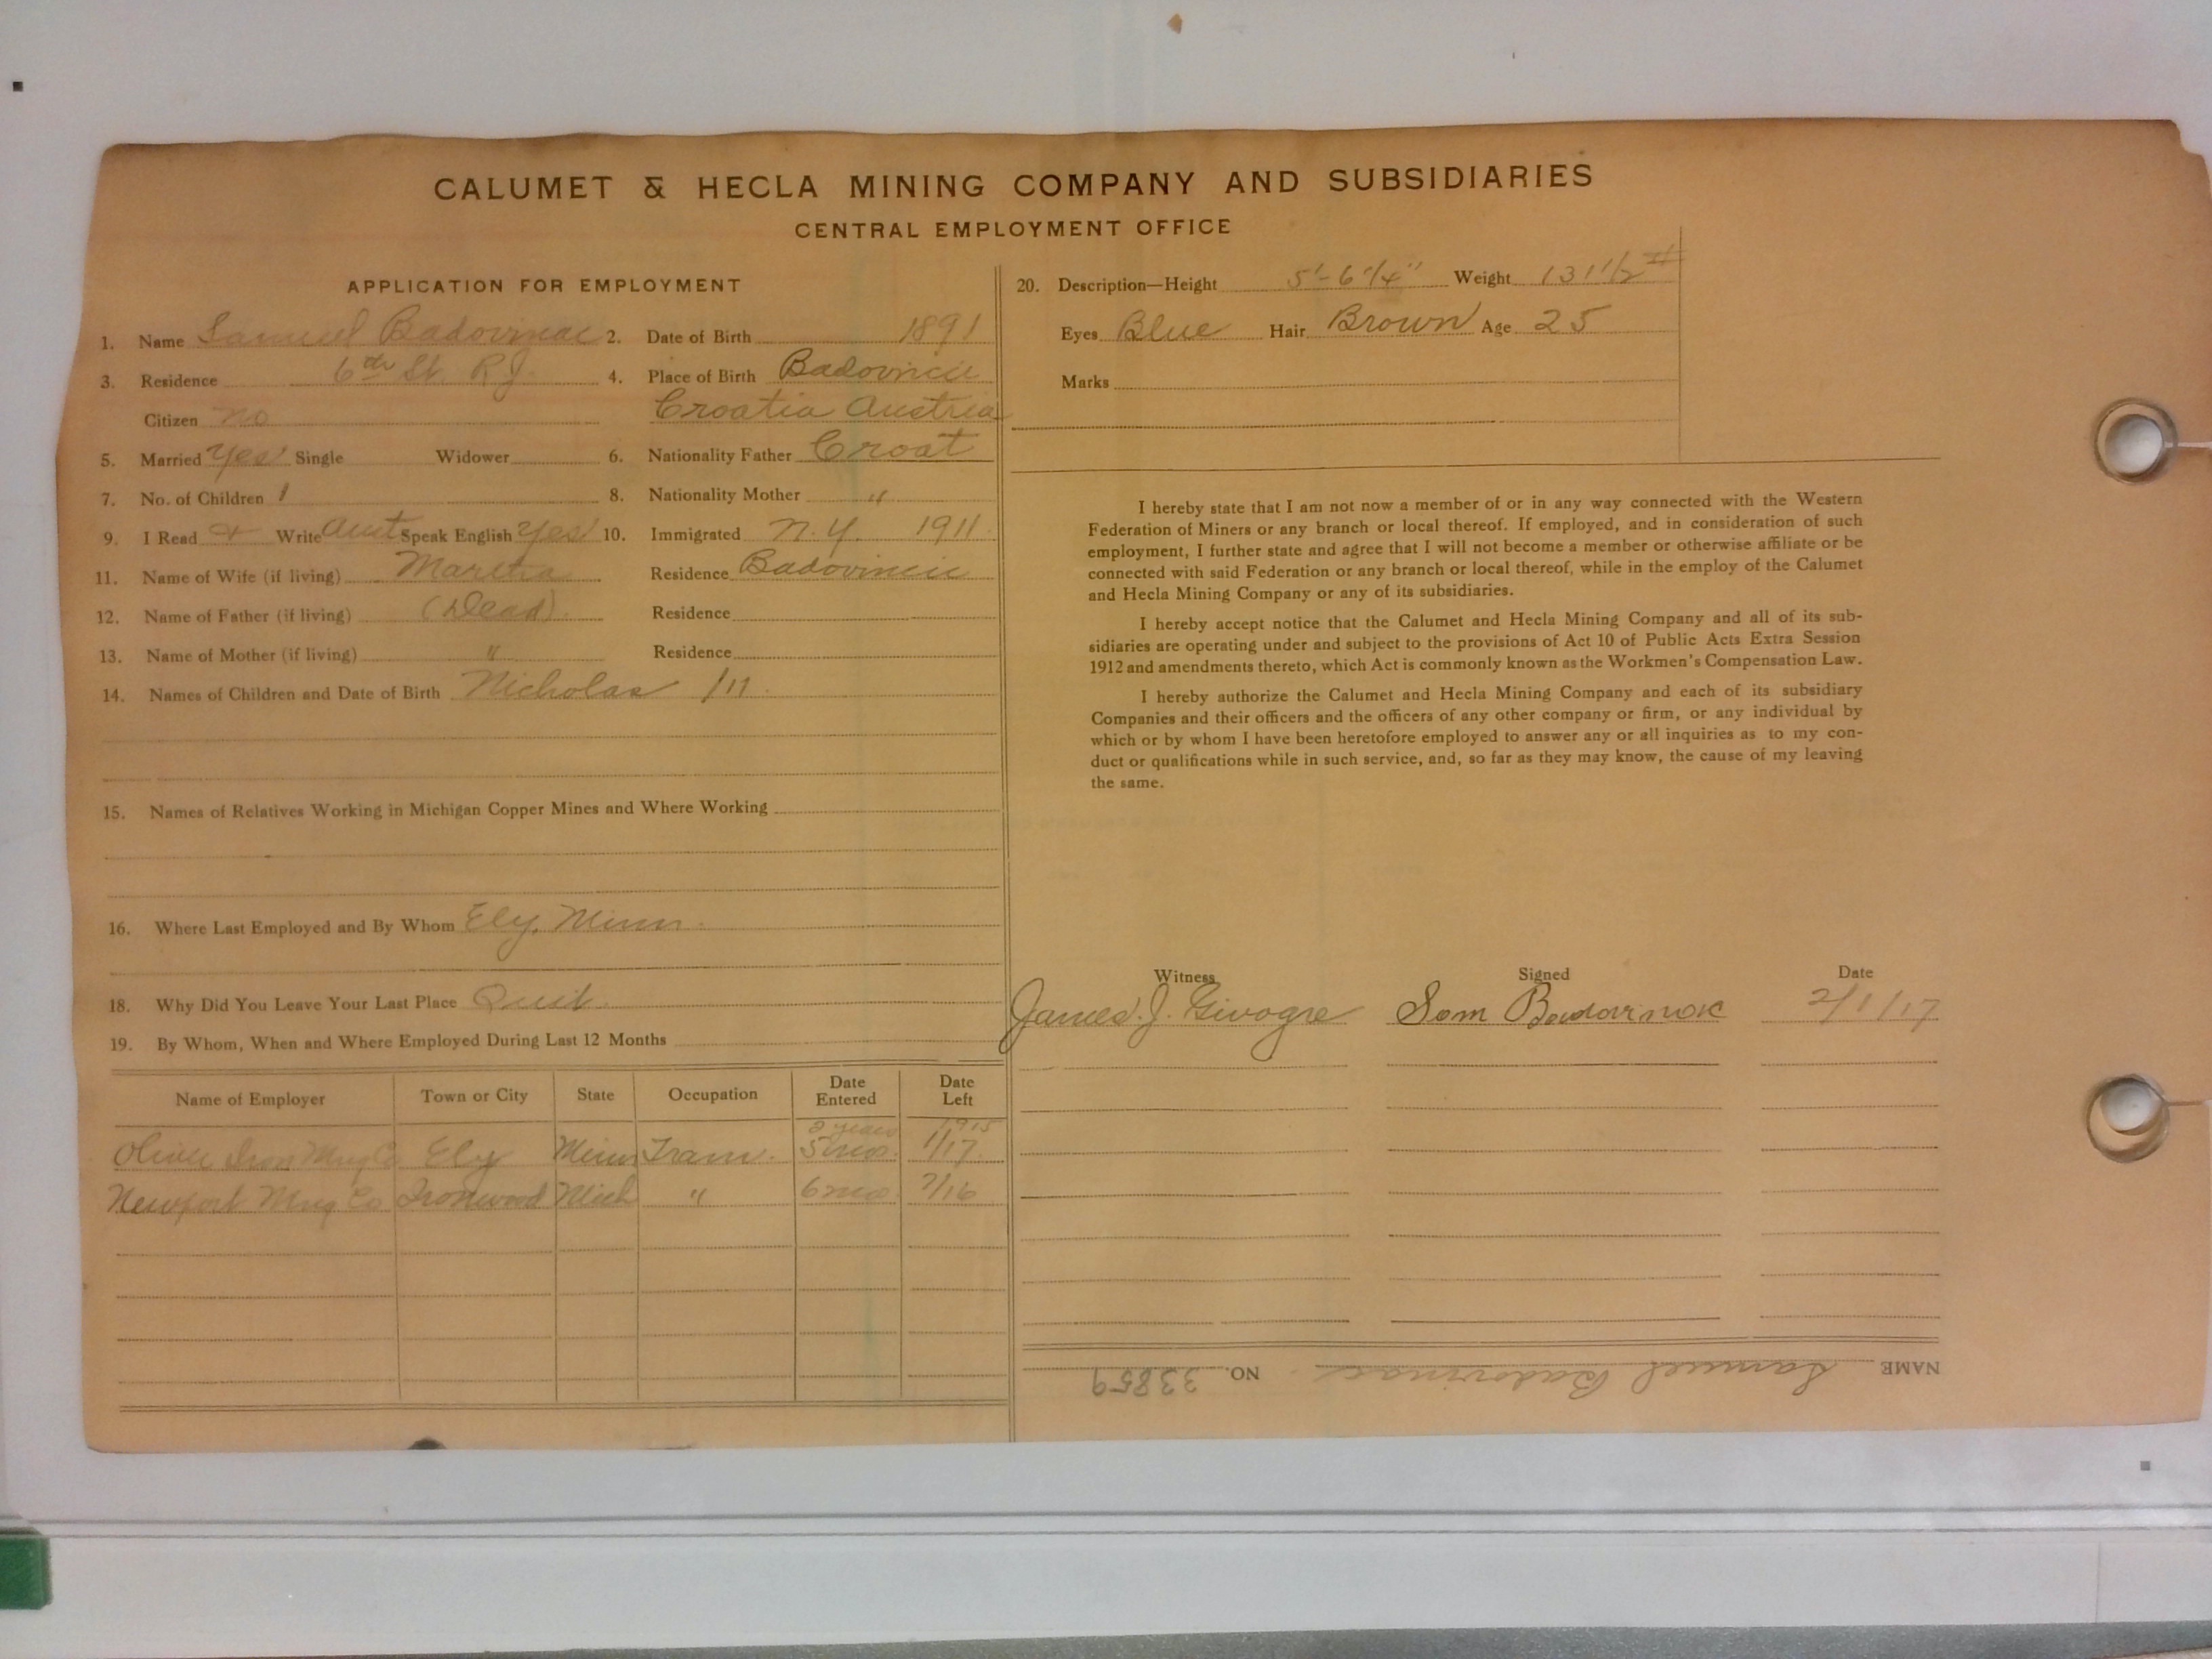 CALUMET & HECLA MINING COMPANY AND SUBSIDIARIES
CENTRAL EMPLOYMENT OFFICE
APPLICATION FOR EMPLOYMENT
1. Name Samuel Badovinac 2. Date of Birth 1891
3. Residence 6th St. R.J. 4. Place of Birth Badovincic
Citizen no Croatia Austria
5. Married Yes Single Widower 6. Nationality Father Croat
7. No. of Children 1 8. Nationality Mother "
9. I Read & Write Aust Speak English Yes 10. Immigrated N.Y. 1911
11. Name of Wife (if living) Martha Residence Badovincic
12. Name of Father (if living) (Dead) Residence
13. Name of Mother (if living) " Residence
14. Names of Children and Date of Birth Nicholas /11
15. Names of Relatives Working in Michigan Copper Mines and Where Working
16. Where Last Employed and By Whom Ely, Minn.
18. Why Did You Leave Your Last Place Quit
19. By Whom, When and Where Employed During Last 12 Months
Name of Employer Town or City State Occupation Date Entered Date Left
2 years 1915
Oliver Iron Mng Co Ely Minn Tram. 5 mo. 1/17
Newport Mng Co Ironwood Mich " 6 mo. 7/16
20. Description—Height 5'-6 1/4" Weight 131 1/2 #
Eyes Blue Hair Brown Age 25
Marks
I hereby state that I am not now a member of or in any way connected with the Western
Federation of Miners or any branch or local thereof. If employed, and in consideration of such
employment, I further state and agree that I will not become a member or otherwise affiliate or be
connected with said Federation or any branch or local thereof, while in the employ of the Calumet
and Hecla Mining Company or any of its subsidiaries.
I hereby accept notice that the Calumet and Hecla Mining Company and all of its sub-
sidiaries are operating under and subject to the provisions of Act 10 of Public Acts Extra Session
1912 and amendments thereto, which Act is commonly known as the Workmen's Compensation Law.
I hereby authorize the Calumet and Hecla Mining Company and each of its subsidiary
Companies and their officers and the officers of any other company or firm, or any individual by
which or by whom I have been heretofore employed to answer any or all inquiries as to my con-
duct or qualifications while in such service, and, so far as they may know, the cause of my leaving
the same.
Witness Signed Date
James J. Givogre Som 2/1/17
NAME Samuel Badovinac NO. 33859